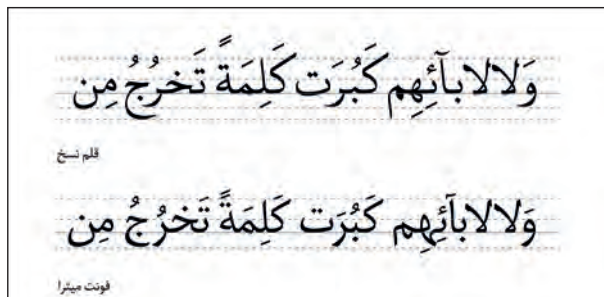 وَلالابآئِهِم كَبُرَت كَلِمَةً تَخرُجُ مِن
قلم نسخ
وَلالابآئِهِم كَبُرَت كَلِمَةً تَخرُجُ مِن
فونت میترا